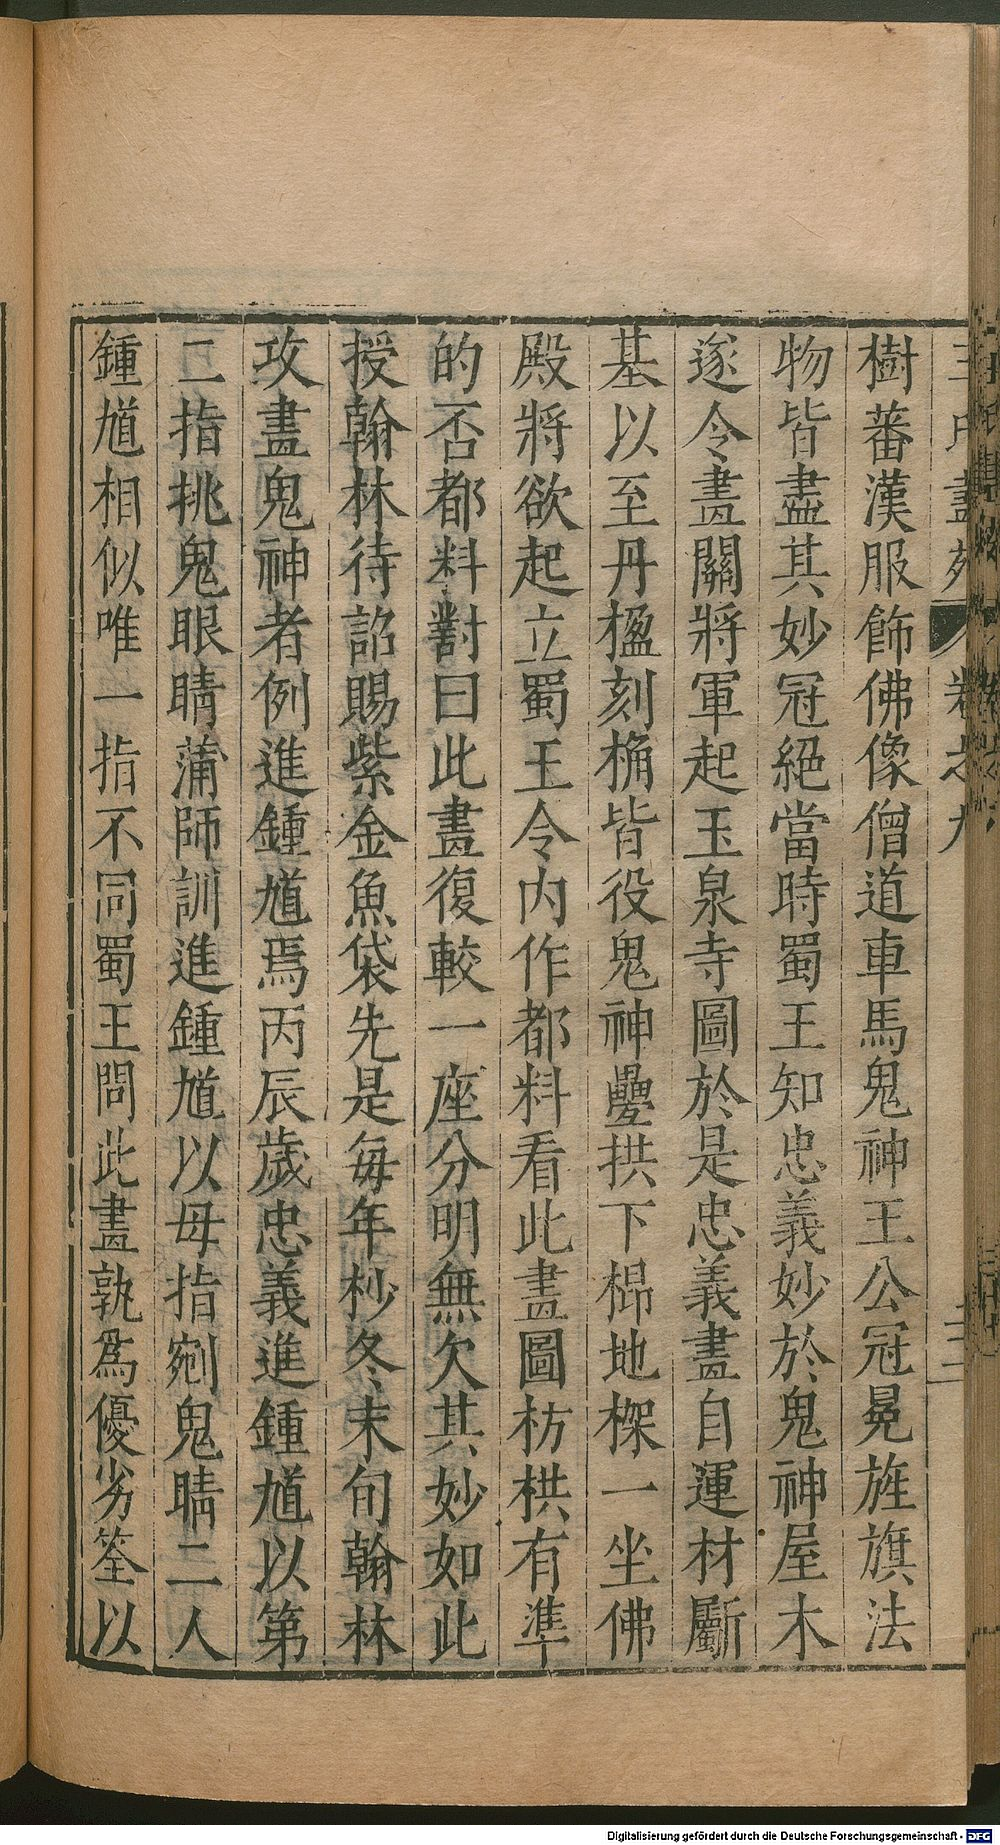 王氏畫苑 卷之九
樹蕃漢服飾佛像僧道車馬鬼神王公冠冕旌旗法
物皆盡其妙冠絕當時蜀王知忠義妙於鬼神屋木
遂令畫關將軍起玉泉寺圖於是忠義畫自運材斸
基以至丹楹刻桷皆役鬼神疊拱下㭘地架一坐佛
殿將欲起立蜀王令內作都料看此畫圖枋栱有準
的否都料對曰此畫復較一座分明無欠其妙如此
授翰林待詔賜紫金魚袋先是每年杪冬末旬翰林
攻畫鬼神者例進鍾馗焉丙辰歲忠義進鍾馗以第
二指挑鬼眼睛蒲師訓進鍾馗以母指剜鬼睛二人
鍾馗相似唯一指不同蜀王問此畫孰爲優劣筌以
Digitalisierung gefördert durch die Deutsche Forschungsgemeinschaft - DFG